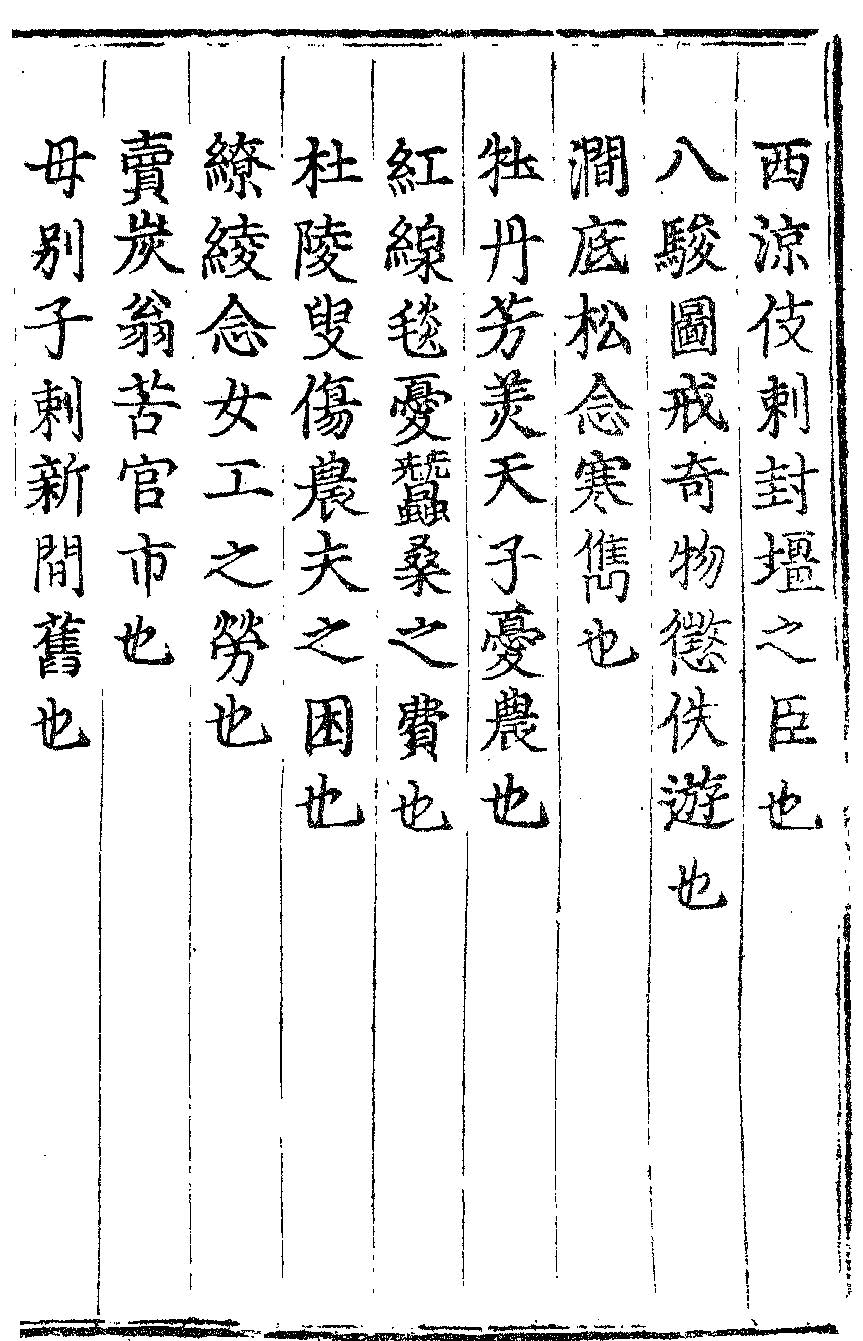 西涼伎刺封壃之臣也
八駿圖戒奇物懲佚遊也
澗底松念寒儁也
牡丹芳羙天子憂農也
紅線毯憂蠶桑之費也
杜陵叟傷農夫之困也
繚綾念女工之勞也
賣炭翁苦官市也
母别子刺新間舊也